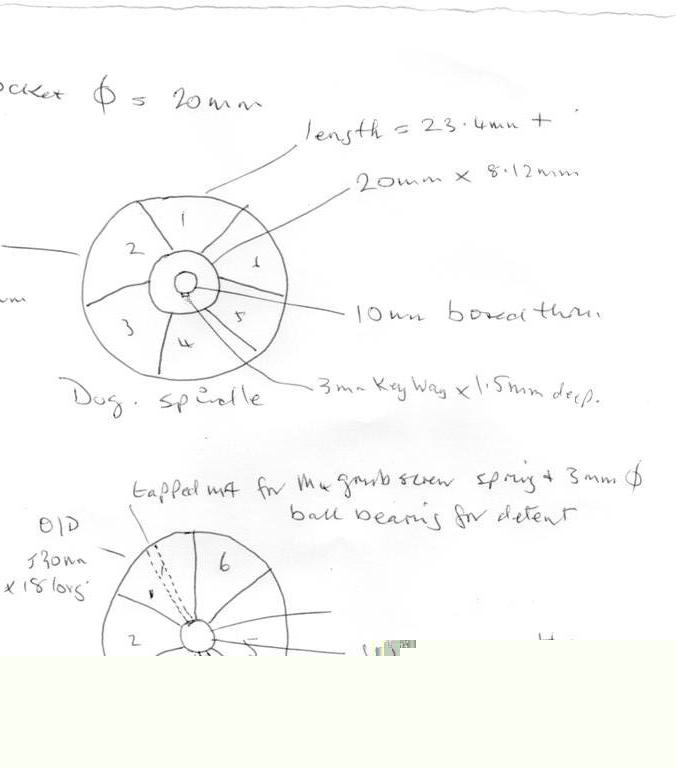 ocket ϕ = 20mm
length = 23.4mm +
20mm x 8.12mm
1
2
1
10mm bored thru.
5
3
4
3mm Key Way x 1.5mm deep.
Dog. spindle
tapped M4 for M4 grub screw spring + 3mm ϕ
ball bearing for detent
O/D
x 18 long
6
1
2
5